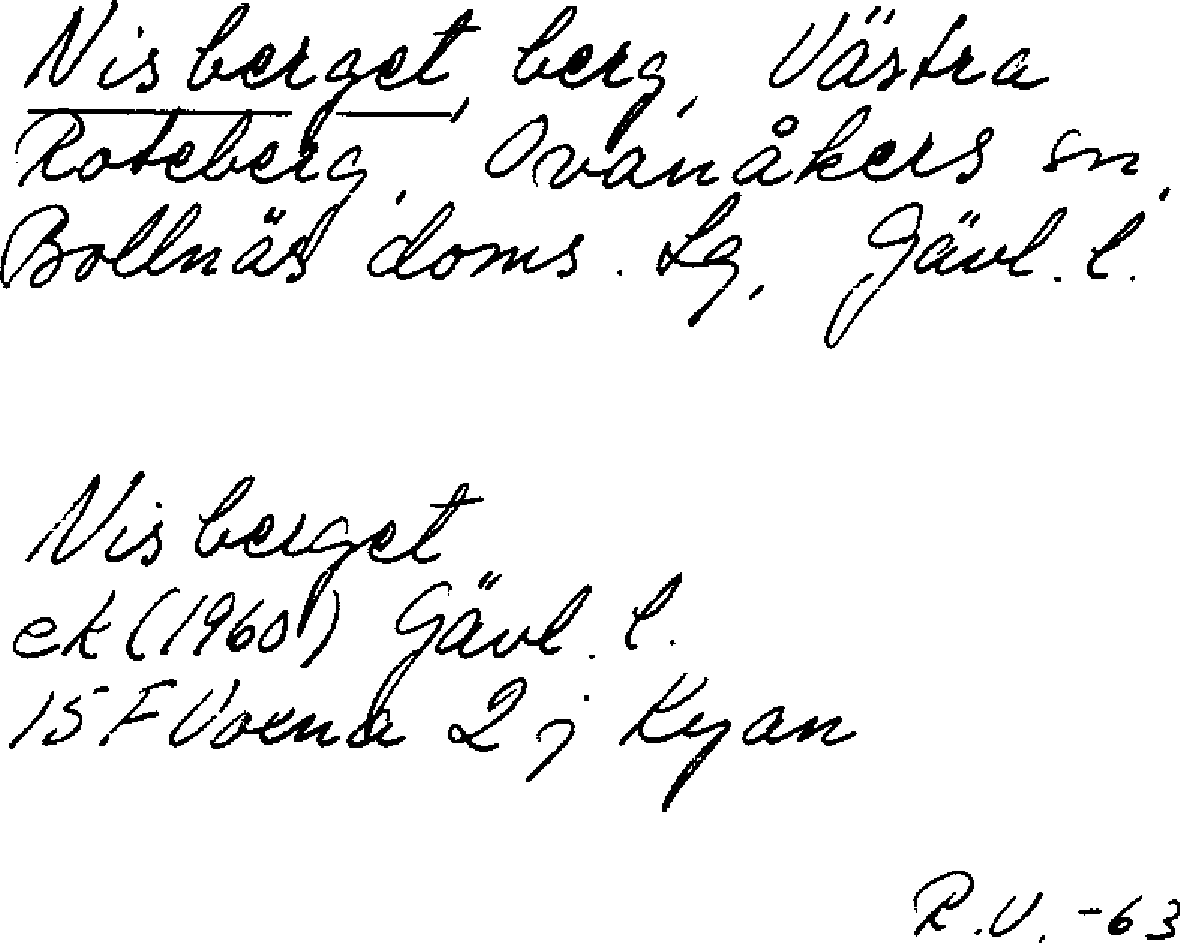 Nisberget, berg, Västra
Roteberg, Ovanåkers sn,
Bollnäs doms. Lg, Gävl. l.
Nisberget
ek (1960) Gävl. l.
15 F Voxna 2 j Kyan
R.V. -63